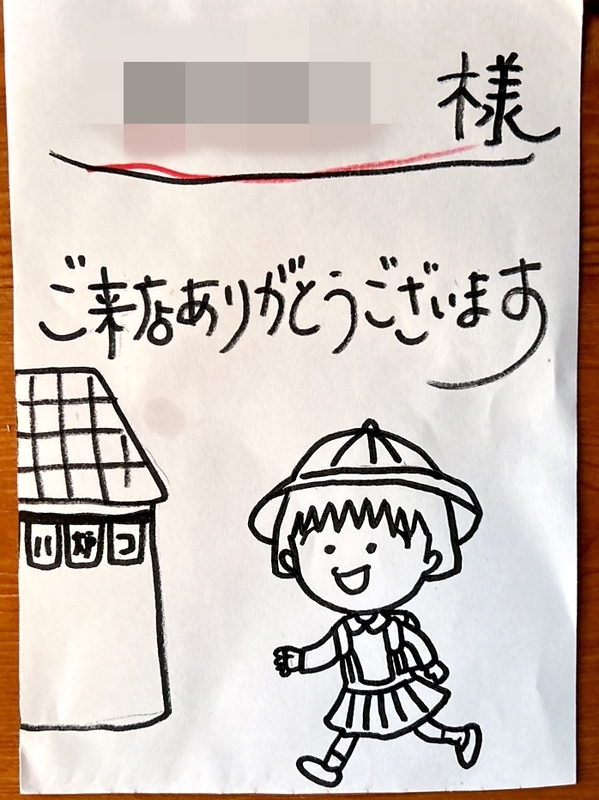 様
ご来店ありがとうございます
いかつ